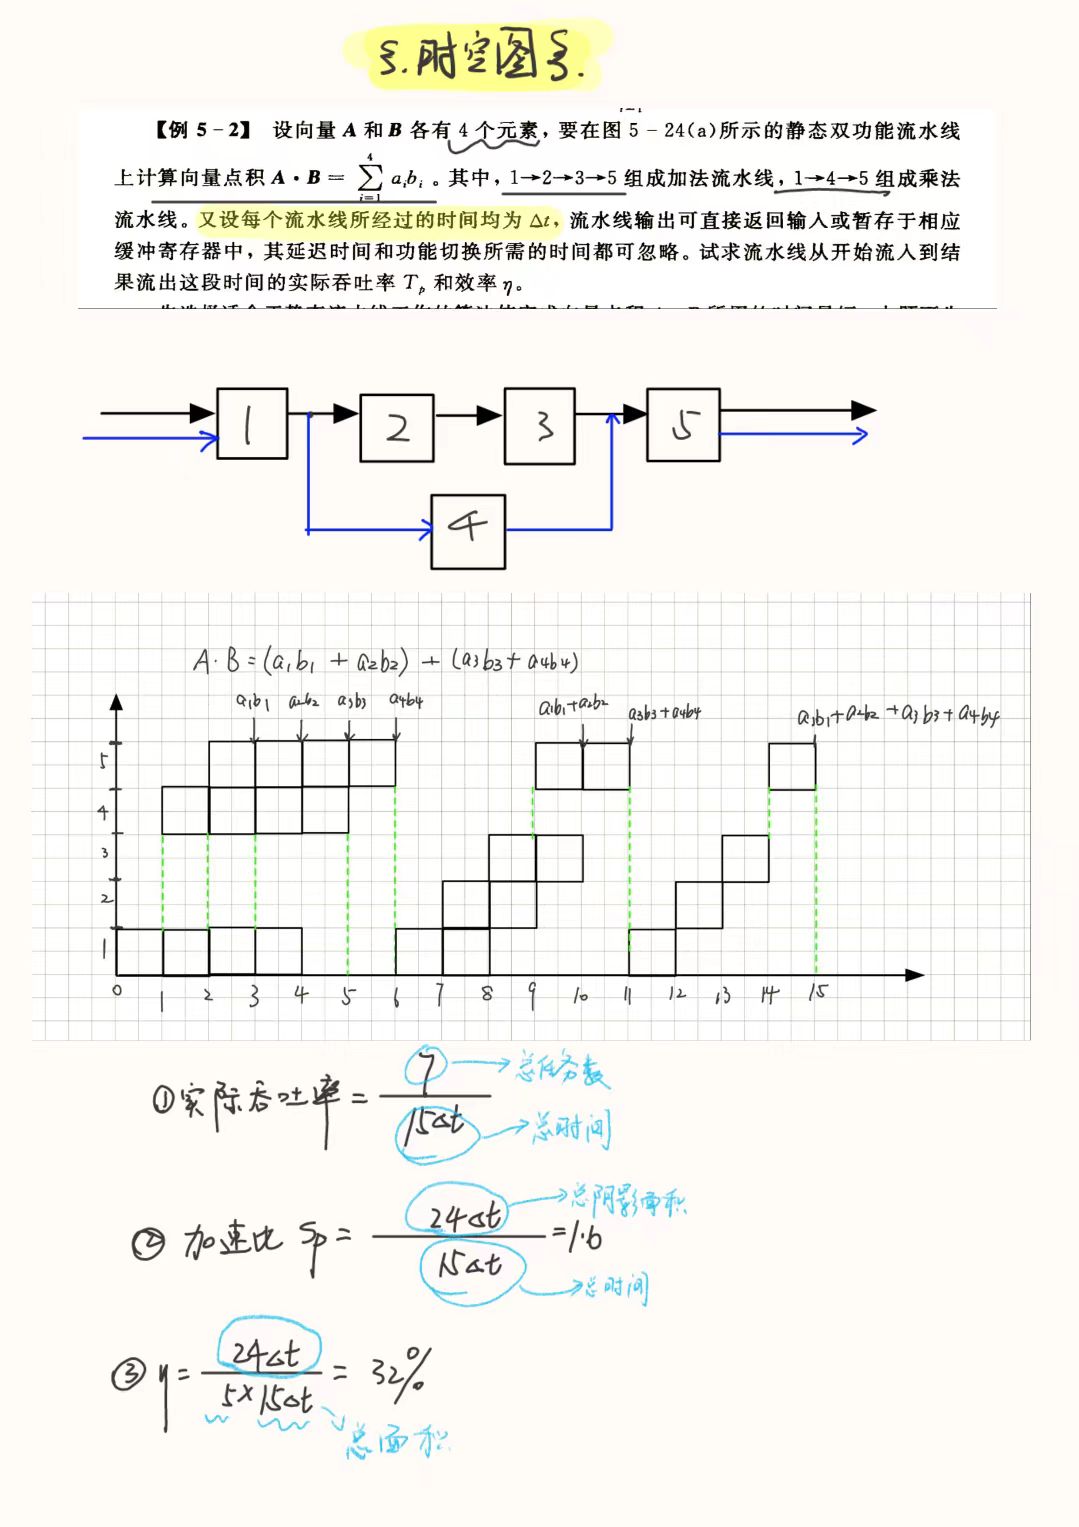 时空图
【例 5-2】 设向量 A 和 B 各有 4 个元素，要在图 5-24(a)所示的静态双功能流水线
上计算向量点积 A·B = ∑_{i=1}^{4} a_i b_i 。其中，1→2→3→5 组成加法流水线，1→4→5 组成乘法
流水线。又设每个流水线所经过的时间均为 Δt，流水线输出可直接返回输入或暂存于相应
缓冲寄存器中，其延迟时间和功能切换所需的时间都可忽略。试求流水线从开始流入到结
果流出这段时间的实际吞吐率 T_p 和效率 η。
1 2 3 5
4
A·B=(a1b1 + a2b2) + (a3b3+a4b4)
a1b1 a2b2 a3b3 a4b4 a1b1+a2b2 a3b3+a4b4 a1b1+a2b2+a3b3+a4b4
5
4
3
2
1
0 1 2 3 4 5 6 7 8 9 10 11 12 13 14 15
①实际吞吐率 = 7 / 15Δt
总任务数
总时间
② 加速比 Sp = 24Δt / 15Δt = 1.6
总阴影面积
总时间
③ η = 24Δt / 5×15Δt = 32%
总面积